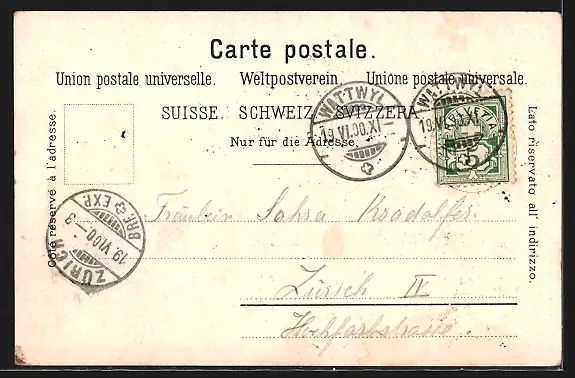 Carte postale.
Union postale universelle. Weltpostverein. Unione postale universale.
SUISSE. SCHWEIZ. SVIZZERA.
Nur für die Adresse.
Côté réservé à l'adresse.
Lato riservato all' indirizzo.
WATTWYL
19.VI.00.XI
WATTWYL
19.VI.00.XI
5
ZÜRICH BRF. EXP.
19.VI.00.-3
Fräulein Sahra Kradolfer.
Zürich IV.
Hochfarbstrasse.